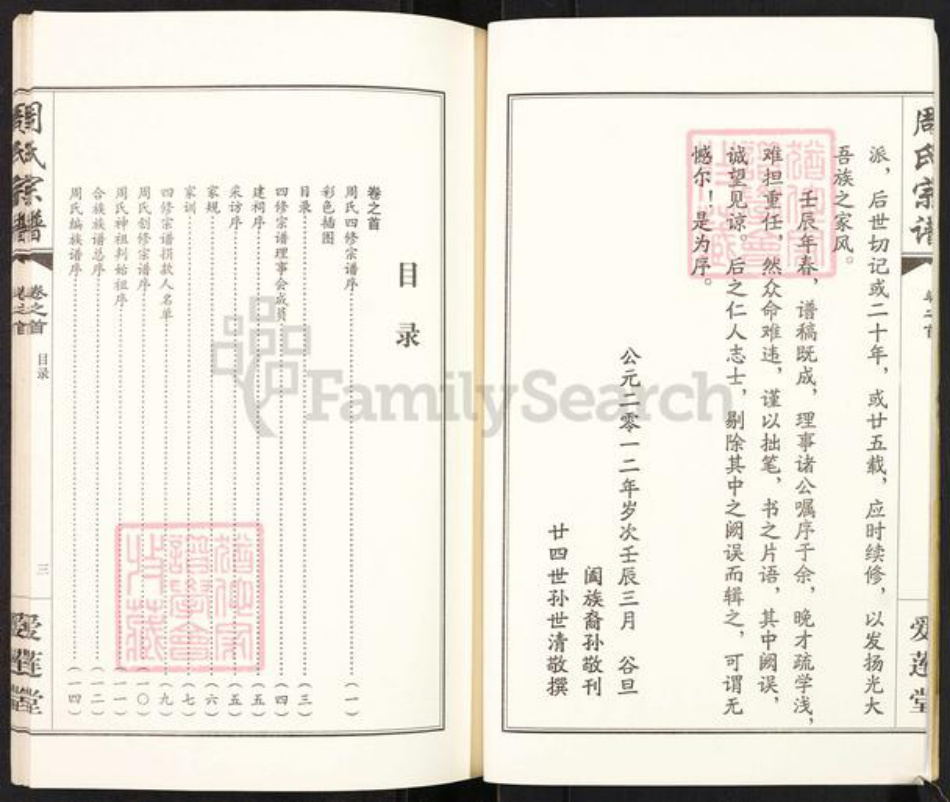 周氏宗谱
卷之首
爱莲堂
派，后世切记或二十年，或廿五载，应时续修，以发扬光大
吾族之家风。
壬辰年春，谱稿既成，理事诸公嘱序于余，晚才疏学浅，
难担重任，然众命难违，谨以拙笔，书之片语，其中阙误，
诚望见谅。后之仁人志士，剔除其中之阙误而辑之，可谓无
憾尔！是为序。
公元二零一二年岁次壬辰三月 谷旦
阖族裔孙敬刊
廿四世孙世清敬撰
目录
卷之首
周氏四修宗谱序（一）
彩色插图
目录（三）
四修宗谱理事会成员（四）
建祠序（五）
采访序（五）
家规（六）
家训（七）
四修宗谱捐款人名单（九）
周氏创修宗谱序（一〇）
周氏神祖判始祖序（一一）
合族族谱总序（一二）
周氏编族谱序（一四）
周氏宗谱
卷之首
目录
三
爱莲堂
FamilySearch